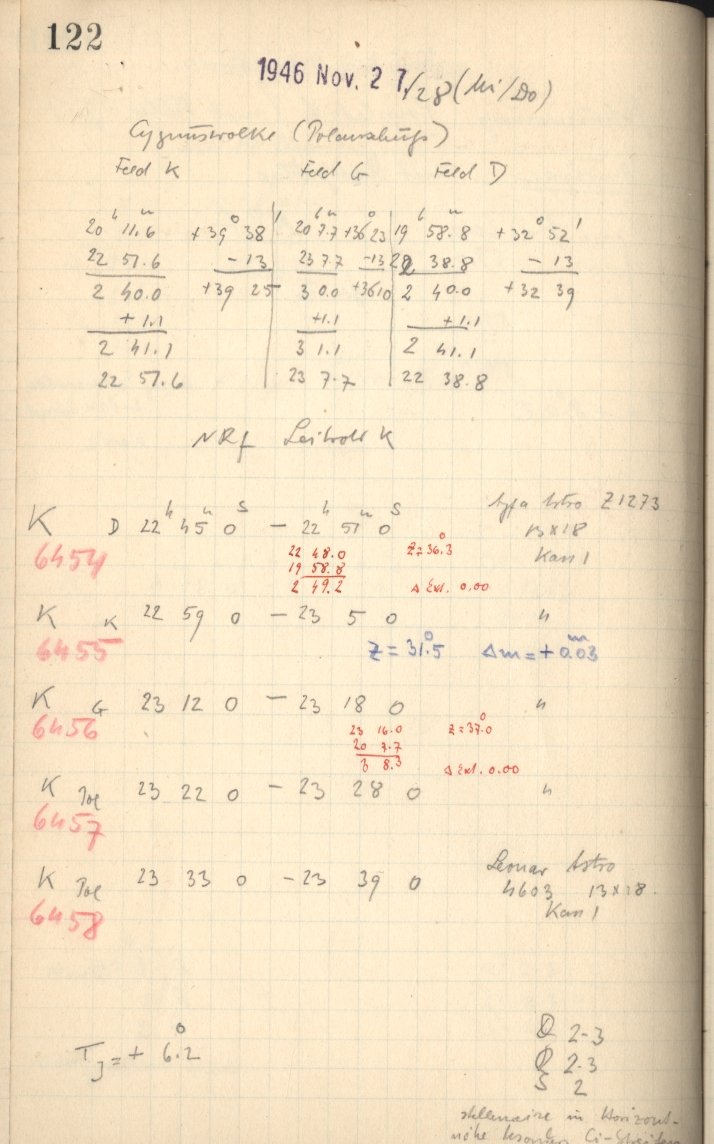 122
1946 Nov. 27/28 (Mi/Do)
Cygnuswolke (Polanschluß)
Feld K Feld G Feld D
20 h 11.6 m +39° 38' 20 h 7.7 m +36° 23 19 h 58.8 m +32° 52'
22 51.6 - 13 23 7.7 -13 22 38.8 - 13
2 40.0 +39 25 3 0.0 +36 10 2 40.0 +32 39
+ 1.1 +1.1 + 1.1
2 41.1 3 1.1 2 41.1
22 51.6 23 7.7 22 38.8
NRf K
Agfa Astro Z1273
K D 22 h 45 m 0 s - 22 h 51 m 0 s 13 x 18
6454 22 48.0 Z = 36.3° Kass 1
19 58.8
2 49.2 Δ Ext. 0.00
K K 22 59 0 - 23 5 0 "
6455 Z = 31.5° Δm = + 0.03 m
K G 23 12 0 - 23 18 0 "
6456 23 16.0 Z = 37.0°
20 7.7
3 8.3 Δ Ext. 0.00
K Pol 23 22 0 - 23 28 0 "
6457
Leonar Astro
K Pol 23 33 0 - 23 39 0 4603 13 x 18.
6458 Kass 1
T J = + 6.2°
2-3
2.3
S 2
stellenweise in Horizont-
nähe besonders Ci-Streifen